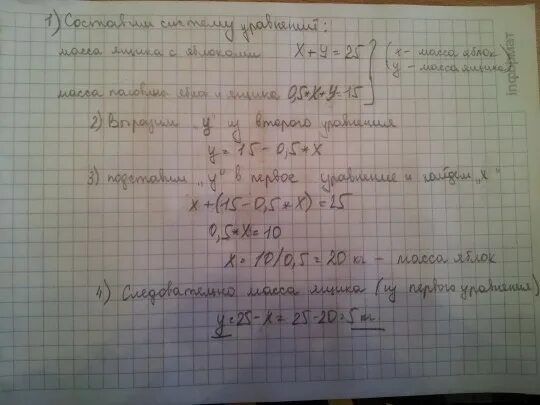 1) Составим систему уравнений:
масса ящика с яблоками x+y=25 (x - масса яблок
y - масса ящика)
масса половины яблок и ящика 0,5*x+y=15
2) Выразим "y" из второго уравнения
y=15-0,5*x
3) подставим "y" в первое уравнение и найдем "x"
x+(15-0,5*x)=25
0,5*x=10
x=10/0,5=20 кг - масса яблок
4) Следовательно масса ящика (из первого уравнения)
y=25-x=25-20=5 кг
inформат